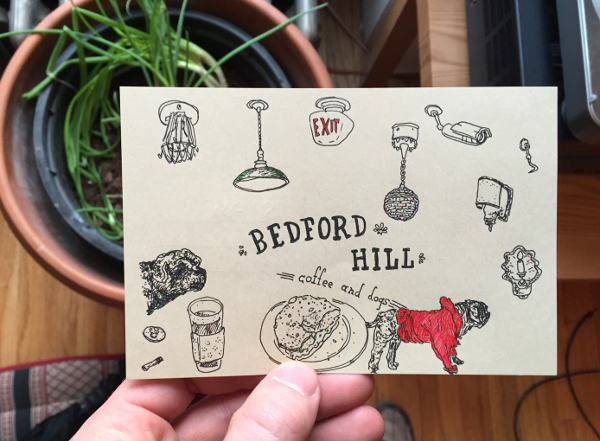 EXIT
BEDFORD
HILL
coffee and dogs